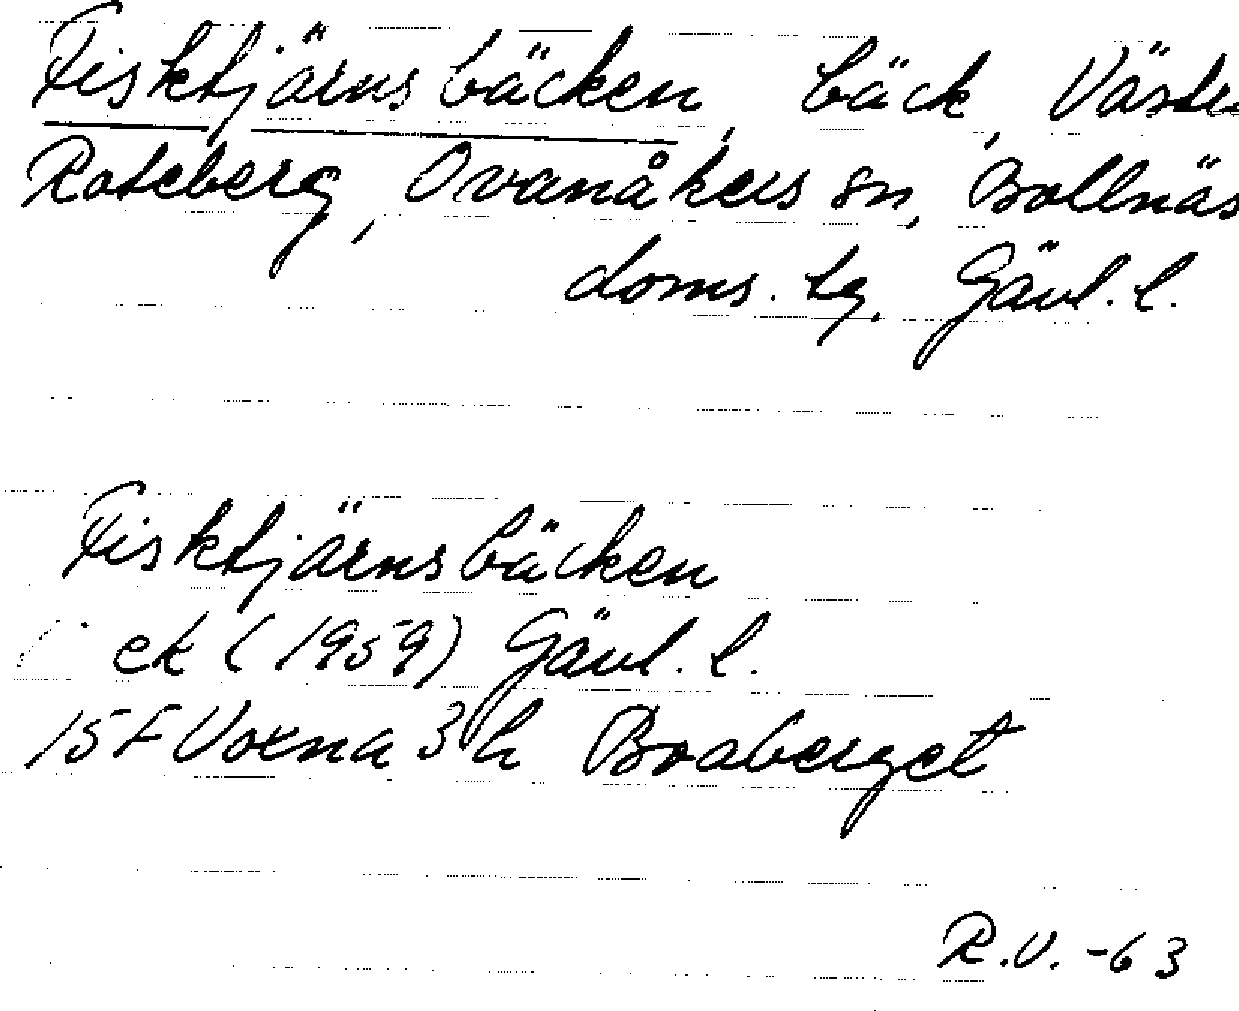 Fisktjärnsbäcken, bäck, Väster
Roteberg, Ovanåkers sn, Bollnäs
doms. tg. Gävl. l.
Fisktjärnsbäcken
ek (1959) Gävl. l.
15 F Voxna 3 h Broberget
R.V. -63